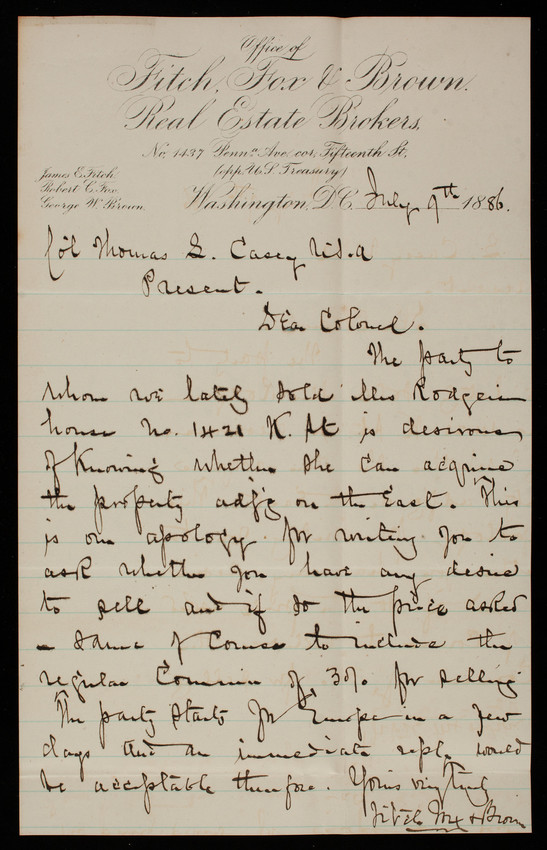 Office of
Fitch, Fox & Brown.
Real Estate Brokers,
No, 1437 Penna. Ave. cor. Fifteenth St.
(opp. U.S. Treasury)
James E. Fitch
Robert C. Fox.
George W. Brown.
Washington, D.C. July 9th 1886.
Col Thomas L. Casey U.S.A
Present.
Dear Colonel.
The party to
whom we lately sold Mrs Rodgers
house No. 1421 K. St is desirous
of knowing whether she can acquire
the property adj'g on the East. This
is our apology for writing you to
ask whether you have any desire
to sell and if so the price asked
- same of course to include the
regular Commission of 3% for selling
The party starts for Europe in a few
days and an immediate reply would
be acceptable therefore. Yours very truly
Fitch Fox & Brown